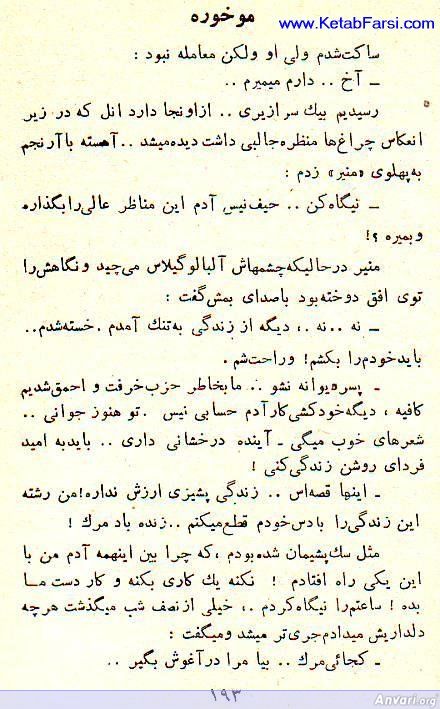 www.KetabFarsi.com
موخوره
ساکت‌شدم ولی او ولکن معامله نبود :
ــ آخ .. دارم میمیرم ..
رسیدیم بیك سرازیری .. ازاونجا دارد انل که در زیر
انعکاس چراغ‌ها منظره‌جالبی داشت دیده‌میشد ..آهسته باآرنجم
به‌پهلوی «منیر» زدم :
ــ نیگاه‌کن .. حیف‌نیس آدم این مناظر عالی‌رابگذاره
وبمیره ؟!
منیر درحالیکه‌چشمهاش آلبالوگیلاس می‌چید ونگاهش‌را
توی افق دوخته‌بود باصدای بمش‌گفت :
ــ نه ..نه .، دیگه از زندگی به‌تنك آمدم .خسته‌شدم..
بایدخودم‌را بکشم! وراحت‌شم .
ــ پسره‌یوانه نشو .. مابخاطر حزب‌خرفت و احمق‌شدیم
کافیه ، دیگه‌خودکشی‌کارآدم حسابی نیس .تو هنوز جوانی ..
شعرهای خوب میگی ـ آینده درخشانی داری .. بایدبه امید
فردای روشن زندگی‌کنی !
ــ اینها قصه‌اس .. زندگی پشیزی ارزش نداره!من رشته
این زندگی‌را بادس‌خودم قطع‌میکنم ..زنده باد مرك !
مثل سك‌پشیمان شده‌بودم ،که چرا بین اینهمه آدم من با
این یکی راه افتادم ! نکنه یك کاری بکنه و کار دست مــا
بده ! ساعتم‌را نیگاه‌کردم .، خیلی ازنصف شب میگذشت هرچه
دلداریش میدادم‌جری‌تر میشد ومیگفت :
ــ کجائی‌مرك .. بیا مرا درآغوش بگیر ..
۱۹۳
Anvari.org